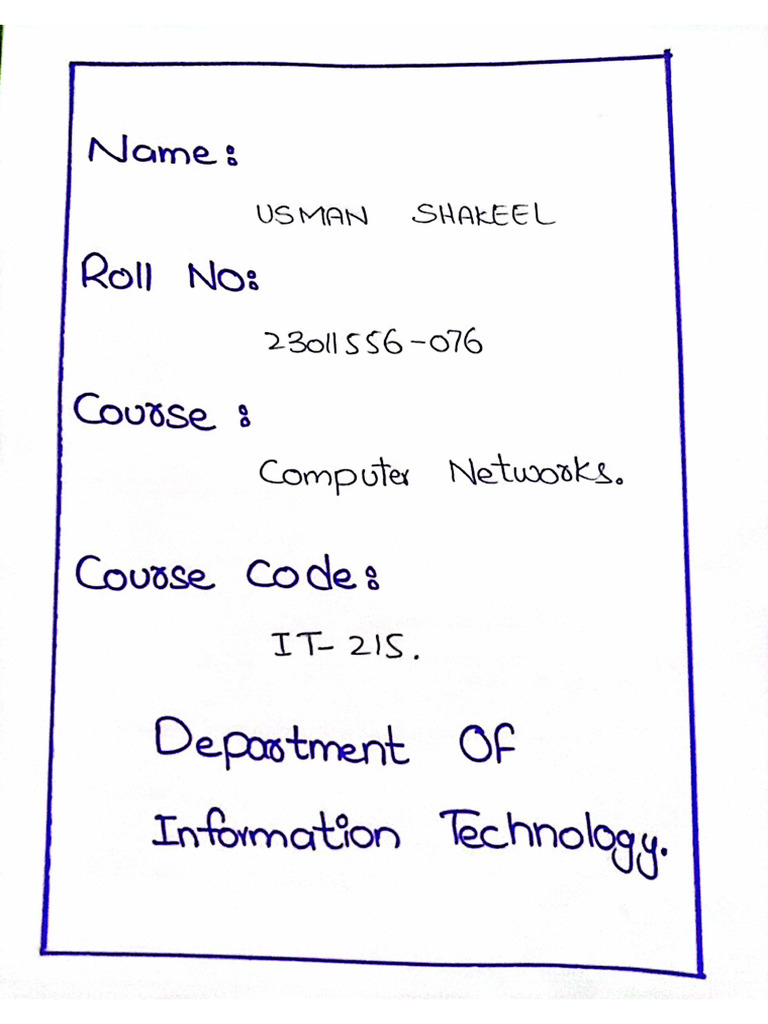 Name:
USMAN SHAKEEL
Roll No:
23011556-076
Course:
Computer Networks.
Course Code:
IT-215.
Department Of
Information Technology.